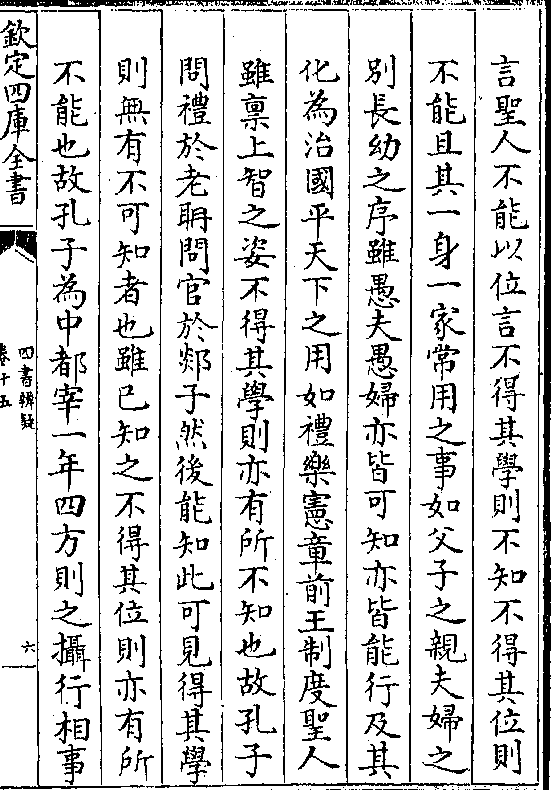 言聖人不能以位言不得其學則不知不得其位則
不能且其一身一家常用之事如父子之親夫婦之
別長幼之序雖愚夫愚婦亦皆可知亦皆能行及其
化為治國平天下之用如禮樂憲章前王制度聖人
雖稟上智之姿不得其學則亦有所不知也故孔子
問禮於老聃問官於郯子然後能知此可見得其學
則無有不可知者也雖已知之不得其位則亦有所
不能也故孔子為中都宰一年四方則之攝行相事
欽定四庫全書
四書辨疑
卷十五
六